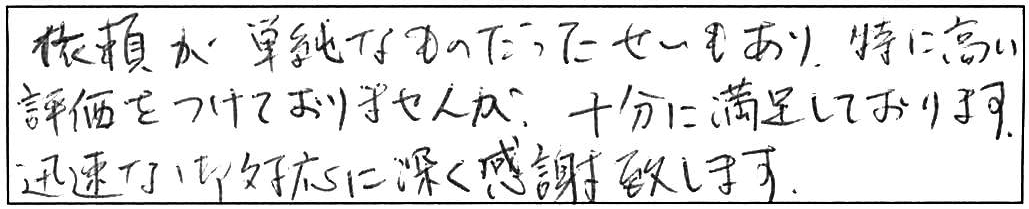 依頼が単純なものだったせいもあり、特に高い
評価をつけておりませんが、十分に満足しております。
迅速な御対応に深く感謝致します。